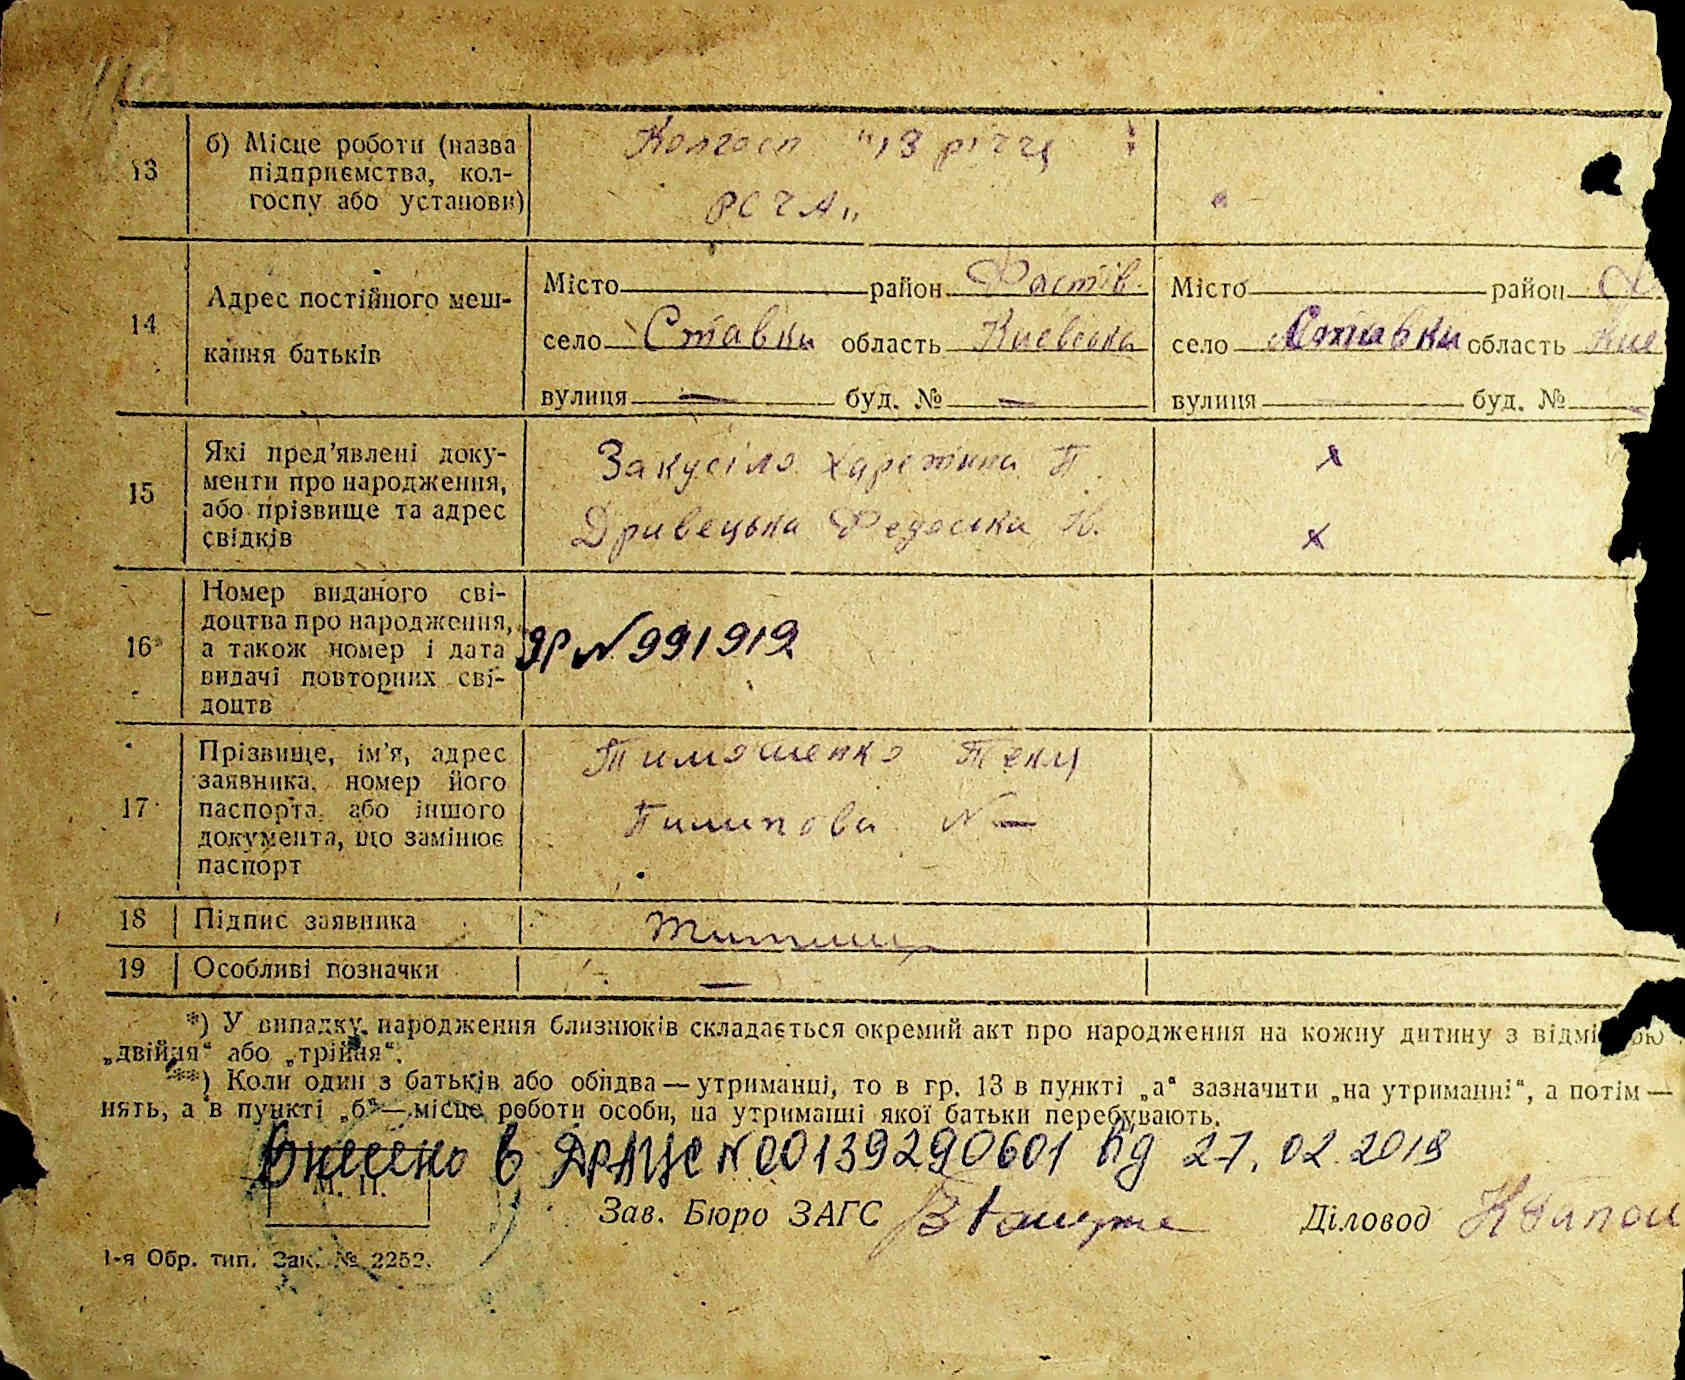 13
б) Місце роботи (назва
підприємства, кол-
госпу або установи)
Колгосп "13 річчя
РСЧА"
14
Адрес постійного меш-
кання батьків
Місто район Фастів.
село Ставки область Киевська
вулиця — буд. № —
Місто район
село Ставки область Кие
вулиця — буд. №
15
Які пред'явлені доку-
менти про народження,
або прізвище та адрес
свідків
Закусіло Харетина П
Дривецька Федоська Н.
16
Номер виданого сві-
доцтва про народження,
а також номер і дата
видачі повторних сві-
доцтв
ЯР № 991919
17
Прізвище, ім'я, адрес
заявника, номер його
паспорта, або іншого
документа, що замінює
паспорт
Тимошенко Текля
Пилипова № —
18 Підпис заявника
19 Особливі позначки —
*) У випадку, народження близнюків складається окремий акт про народження на кожну дитину з відміткою
„двійня“ або „трійня“.
**) Коли один з батьків або обидва — утриманці, то в гр. 13 в пункті „а“ зазначити „на утриманні“, а потім —
нять, а в пункті „б“ — місце роботи особи, на утриманні якої батьки перебувають.
Внесено в ДРАЦС № 00139290601 від 27.02.2019
М. П.
Зав. Бюро ЗАГС
Діловод
1-я Обр. тип. Зак. № 2252.